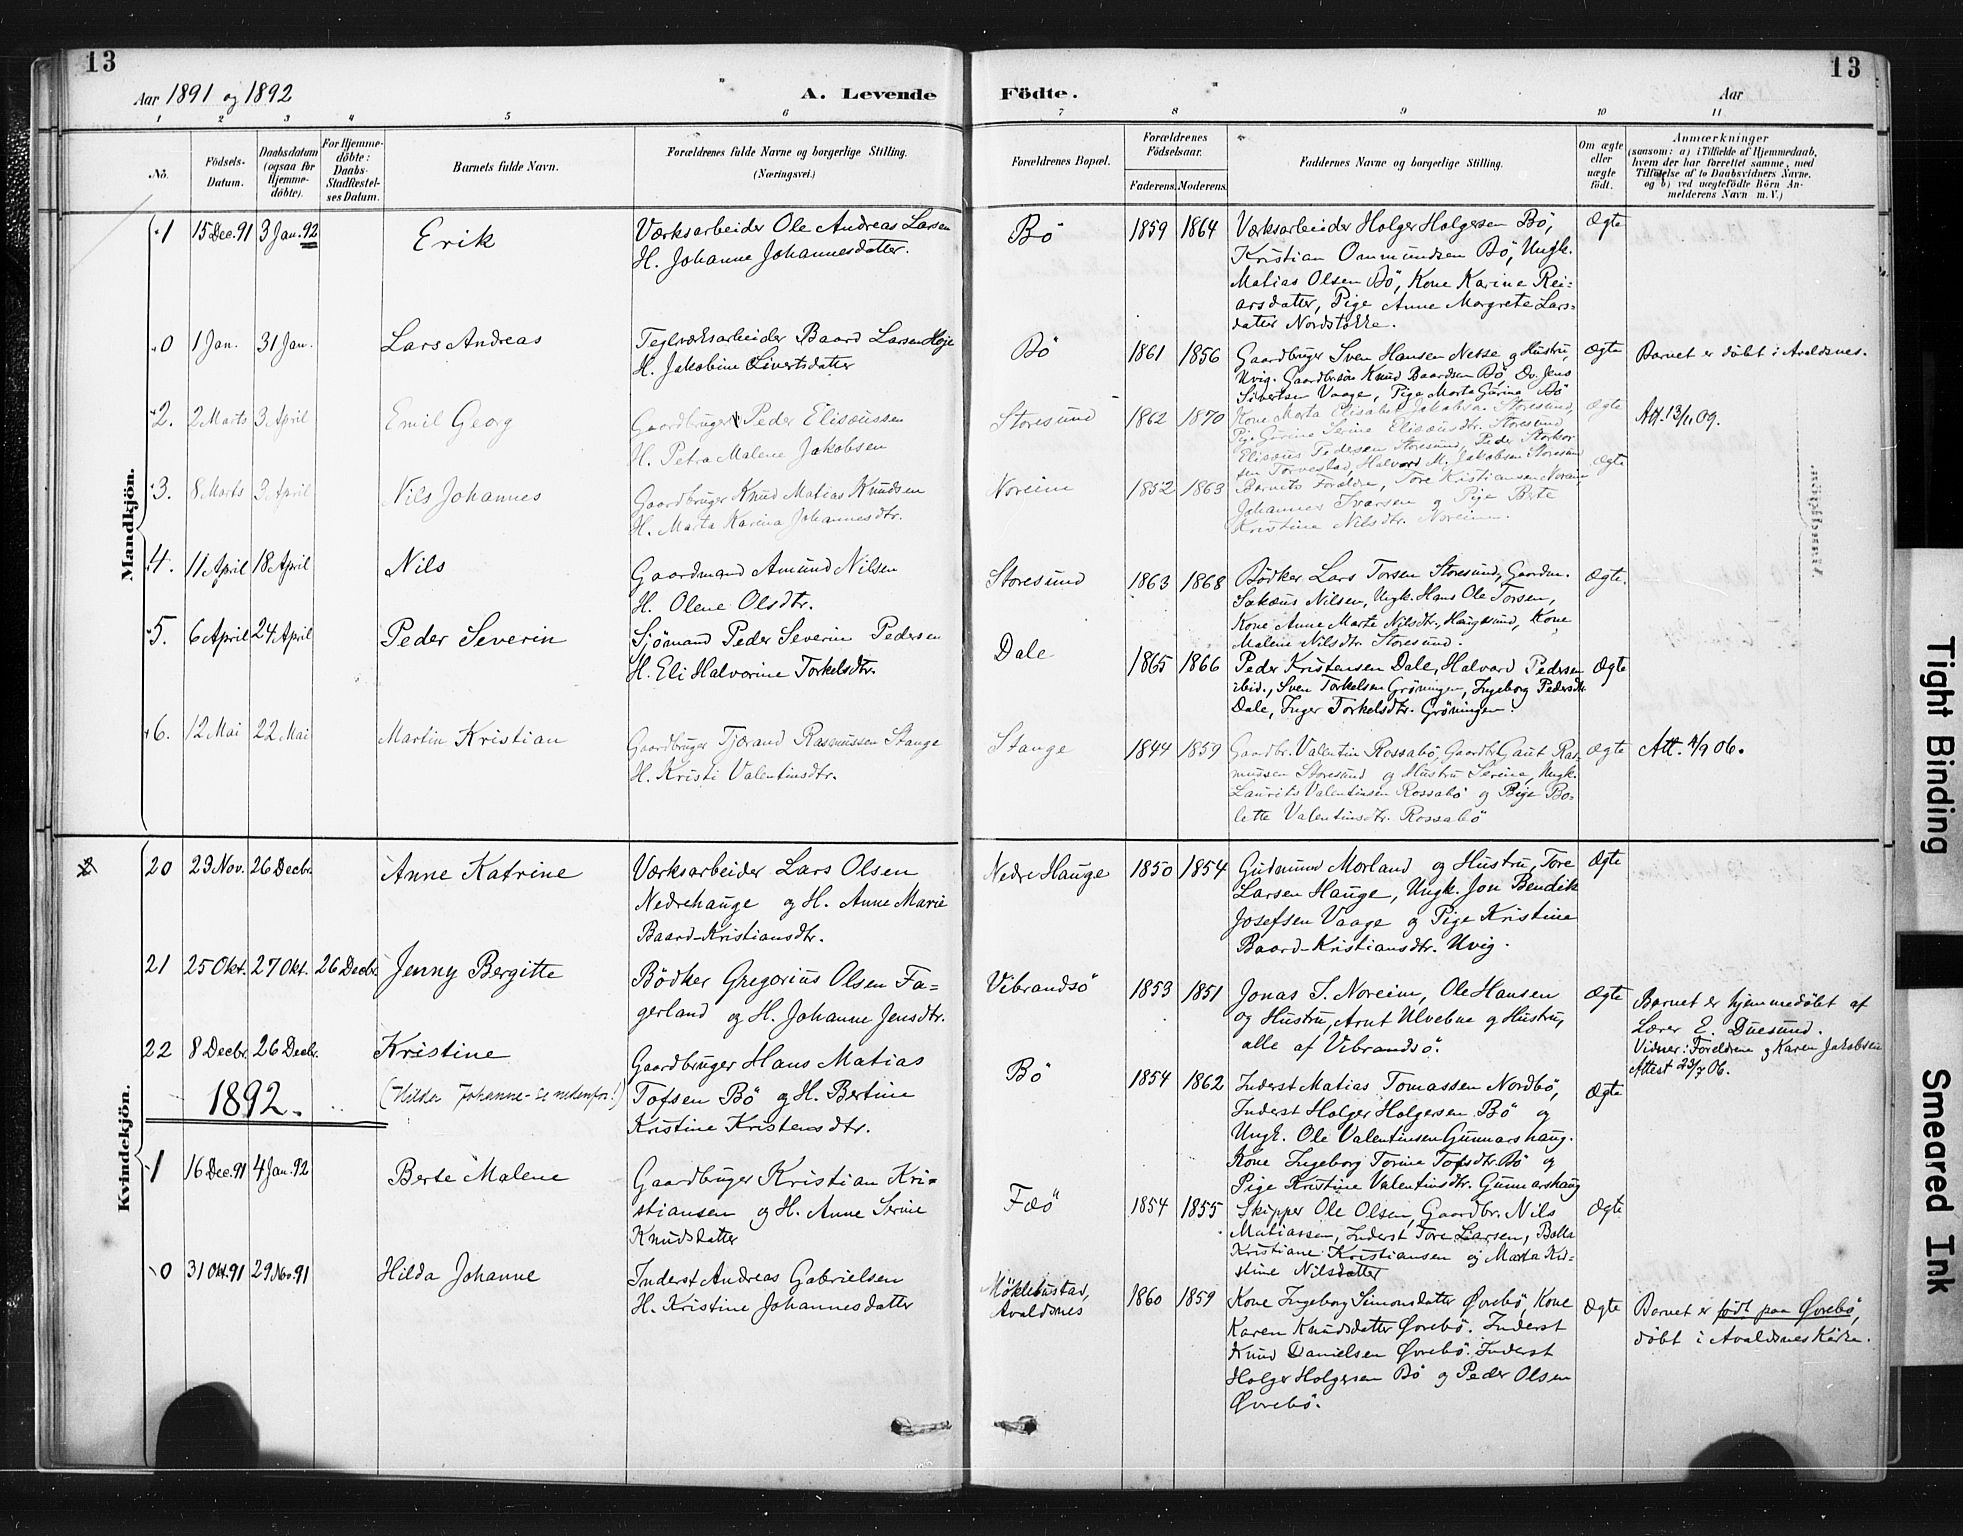 13
Aar 1891 og 1892
A. Levende
1 2 3 4 5 6
No.
Födsels-Datum.
Daabsdatum (ogsaa for Hjemme-döbte).
For Hjemme-döbte: Daabs-Stadfæstel-ses Datum.
Barnets fulde Navn.
Forældrenes fulde Navne og borgerlige Stilling.
(Næringsvei.)
Mandkjön.
1 15 Dec. 91 3 Jan. 92 Erik Værksarbeider Ole Andreas Larsen
H. Johanne Johannesdatter.
0 1 Jan. 31 Jan. Lars Andreas Teglværksarbeider Baard Larsen Høje
H. Jakobine Sivertsdatter
2. 2 Marts 3 April Emil Georg Gaardbruger Peder Elisæussen
H. Petra Malene Jakobsen
3. 8 Marts 3 April Nils Johannes Gaardbruger Knud Matias Knudsen
H. Marta Karina Johannesdtr.
4. 11 April 18 April Nils Gaardmand Amund Nilsen
H. Olene Olsdtr.
5. 6 April 24 April Peder Severin Sjömand Peder Severin Pedersen
H. Eli Halvorine Torkelsdtr.
6. 12 Mai 22 Mai Martin Kristian Gaardbruger Tjærand Rasmussen Stange
H. Kristi Valentinsdtr.
Kvindekjön.
20 23 Nov. 26 Decbr. Anne Katrine Værksarbeider Lars Olsen
Nedrehauge og H. Anne Marie
Baard-Kristiansdtr.
21 25 Okt. 27 Okt. 26 Decbr. Jenny Bergitte Bödker Gregorius Olsen Fa-
gerland og H. Johanne Jensdtr.
22 8 Decbr. 26 Decbr. Kristine Gaardbruger Hans Matias
1892. (Hilda Johanne - se nedenfor!) Tofsen Bö og H. Bertine
Kristine Kristensdtr.
1 16 Dec. 91 4 Jan. 92 Berte Malene Gaardbruger Kristian Kri-
stiansen og H. Anne Serine
Knudsdatter
0 31 Okt. 91 29 Nov. 91 Hilda Johanne Inderst Andreas Gabrielsen
H. Kristine Johannesdatter
13
Födte.
Aar
7 8 9 10 11
Forældrenes Bopæl.
Forældrenes Födselsaar.
Faderens. Moderens.
Faddernes Navne og borgerlige Stilling.
Om ægte eller uægte födt.
Anmærkninger
(saasom: a) i Tilfælde af Hjemmedaab,
hvem der har forrettet samme, med
Tilföielse af to Daabsvidners Navne.
og b) ved uægtefödte Börn An-
melderens Navn m. V.)
Bö 1859 1864 Værksarbeider Holger Holgersen Bö, Ægte
Kristian Ommundsen Bö, Ungk.
Matias Olsen Bö, Kone Karine Rei-
arsdatter, Pige Anne Margrete Lars-
datter Nordstokke.
Bö 1861 1856 Gaardbruger Sven Hansen Nesse og Hustru, Ægte Barnet er döbt i Avaldsnes.
Uvig. Gaardbr.sön Knud Baardsen Bö, Do. Jens
Sivertsen Vaage, Pige Marta Gurina Bö
Storesund 1862 1870 Kone Marta Elisabet Jakobsen Storesund, Ægte Att. 13/11 09.
Pige Gurine Serine Elisæusdtr. Storesund
Elisæus Pedersen Storesund, Peder Storkor-
sen Torvestad, Halvard M. Jakobsen Storesund
Noreim 1852 1863 Barnets Forældre, Tore Kristiansen Noreim Ægte
Johannes Ivarsen og Pige Berte
Kristine Nilsdtr. Noreim.
Storesund 1863 1868 Bödker Lars Torsen Storesund, Gaardm. Ægte.
Sakæus Nilsen, Ungk. Hans Ole Torsen,
Kone Anne Marta Nilsdtr. Haugesund, Kone
Malene Nilsdtr Storesund.
Dale 1865 1866 Peder Kristensen Dale, Halvard Pedersen Ægte
ibid., Sven Torkelsen Gröningen, Ingeborg Pedersdtr.
Dale, Inger Torkelsdtr. Gröningen.
Stange 1844 1859 Gaardbr. Valentin Rossabö, Gaardbr. Gaut Ras- Ægte Att. 4/9 06.
mussen Storesund og Hustru Serine, Ungk.
Laurits Valentinsen Rossabö og Pige Bo-
lette Valentinsdtr. Rossabö
Nedre Hauge 1850 1854 Gudmund Morland og Hustru, Tore Ægte
Larsen Hauge, Ungk. Jon Bendik
Josefsen Vaage og Pige Kristine
Baard-Kristiansdtr. Uvig.
Vibrandsö 1853 1851 Jonas S. Noreim, Ole Hansen Ægte Barnet er hjemmedöbt af
og Hustru, Arnt Ulvebne og Hustru, Lærer E. Duesund.
alle af Vibrandsö. Vidner: Foreldrene og Karen Jakobsen
Attest 23/7 06.
Bö 1854 1862 Inderst Matias Tomassen Nordbö, Ægte
Inderst Holger Holgersen Bö og
Ungk. Ole Valentinsen Gunnarshaug.
Kone Ingeborg Torine Tofsdtr. Bö og
Pige Kristine Valentinsdtr. Gunnarshaug
Fæö 1854 1855 Skipper Ole Olsen, Gaardbr. Nils Ægte
Matiassen, Inderst Tore Larsen,
Kristiane Kristiansen og Marta Kri-
stine Nilsdatter
Möklebustad, Avaldsnes 1860 1859 Kone Ingeborg Simonsdatter Øvrebö, Kone Ægte Barnet er födt paa Øvrebö,
Karen Knudsdatter Øvrebö. Inderst döbt i Avaldsnes Kirke.
Knud Danielsen Øvrebö. Inderst
Holger Holgersen Bö og Peder Olsen
Øvrebö.
Tight Binding
Smeared Ink